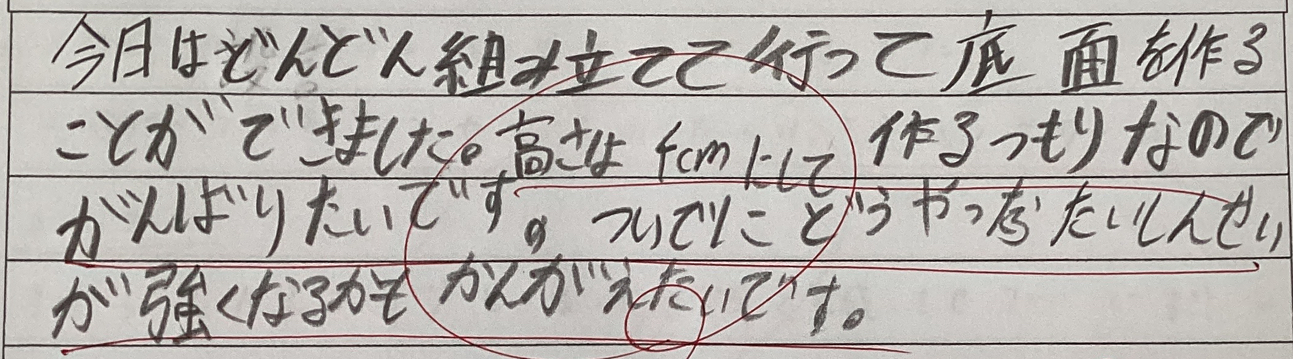 今日はどんどん組み立てて行って底面を作る
ことができました。高さは4cmにして作るつもりなので
がんばりたいです。ついでにどうやったらたいしんせい
が強くなるかもかんがえたいです。